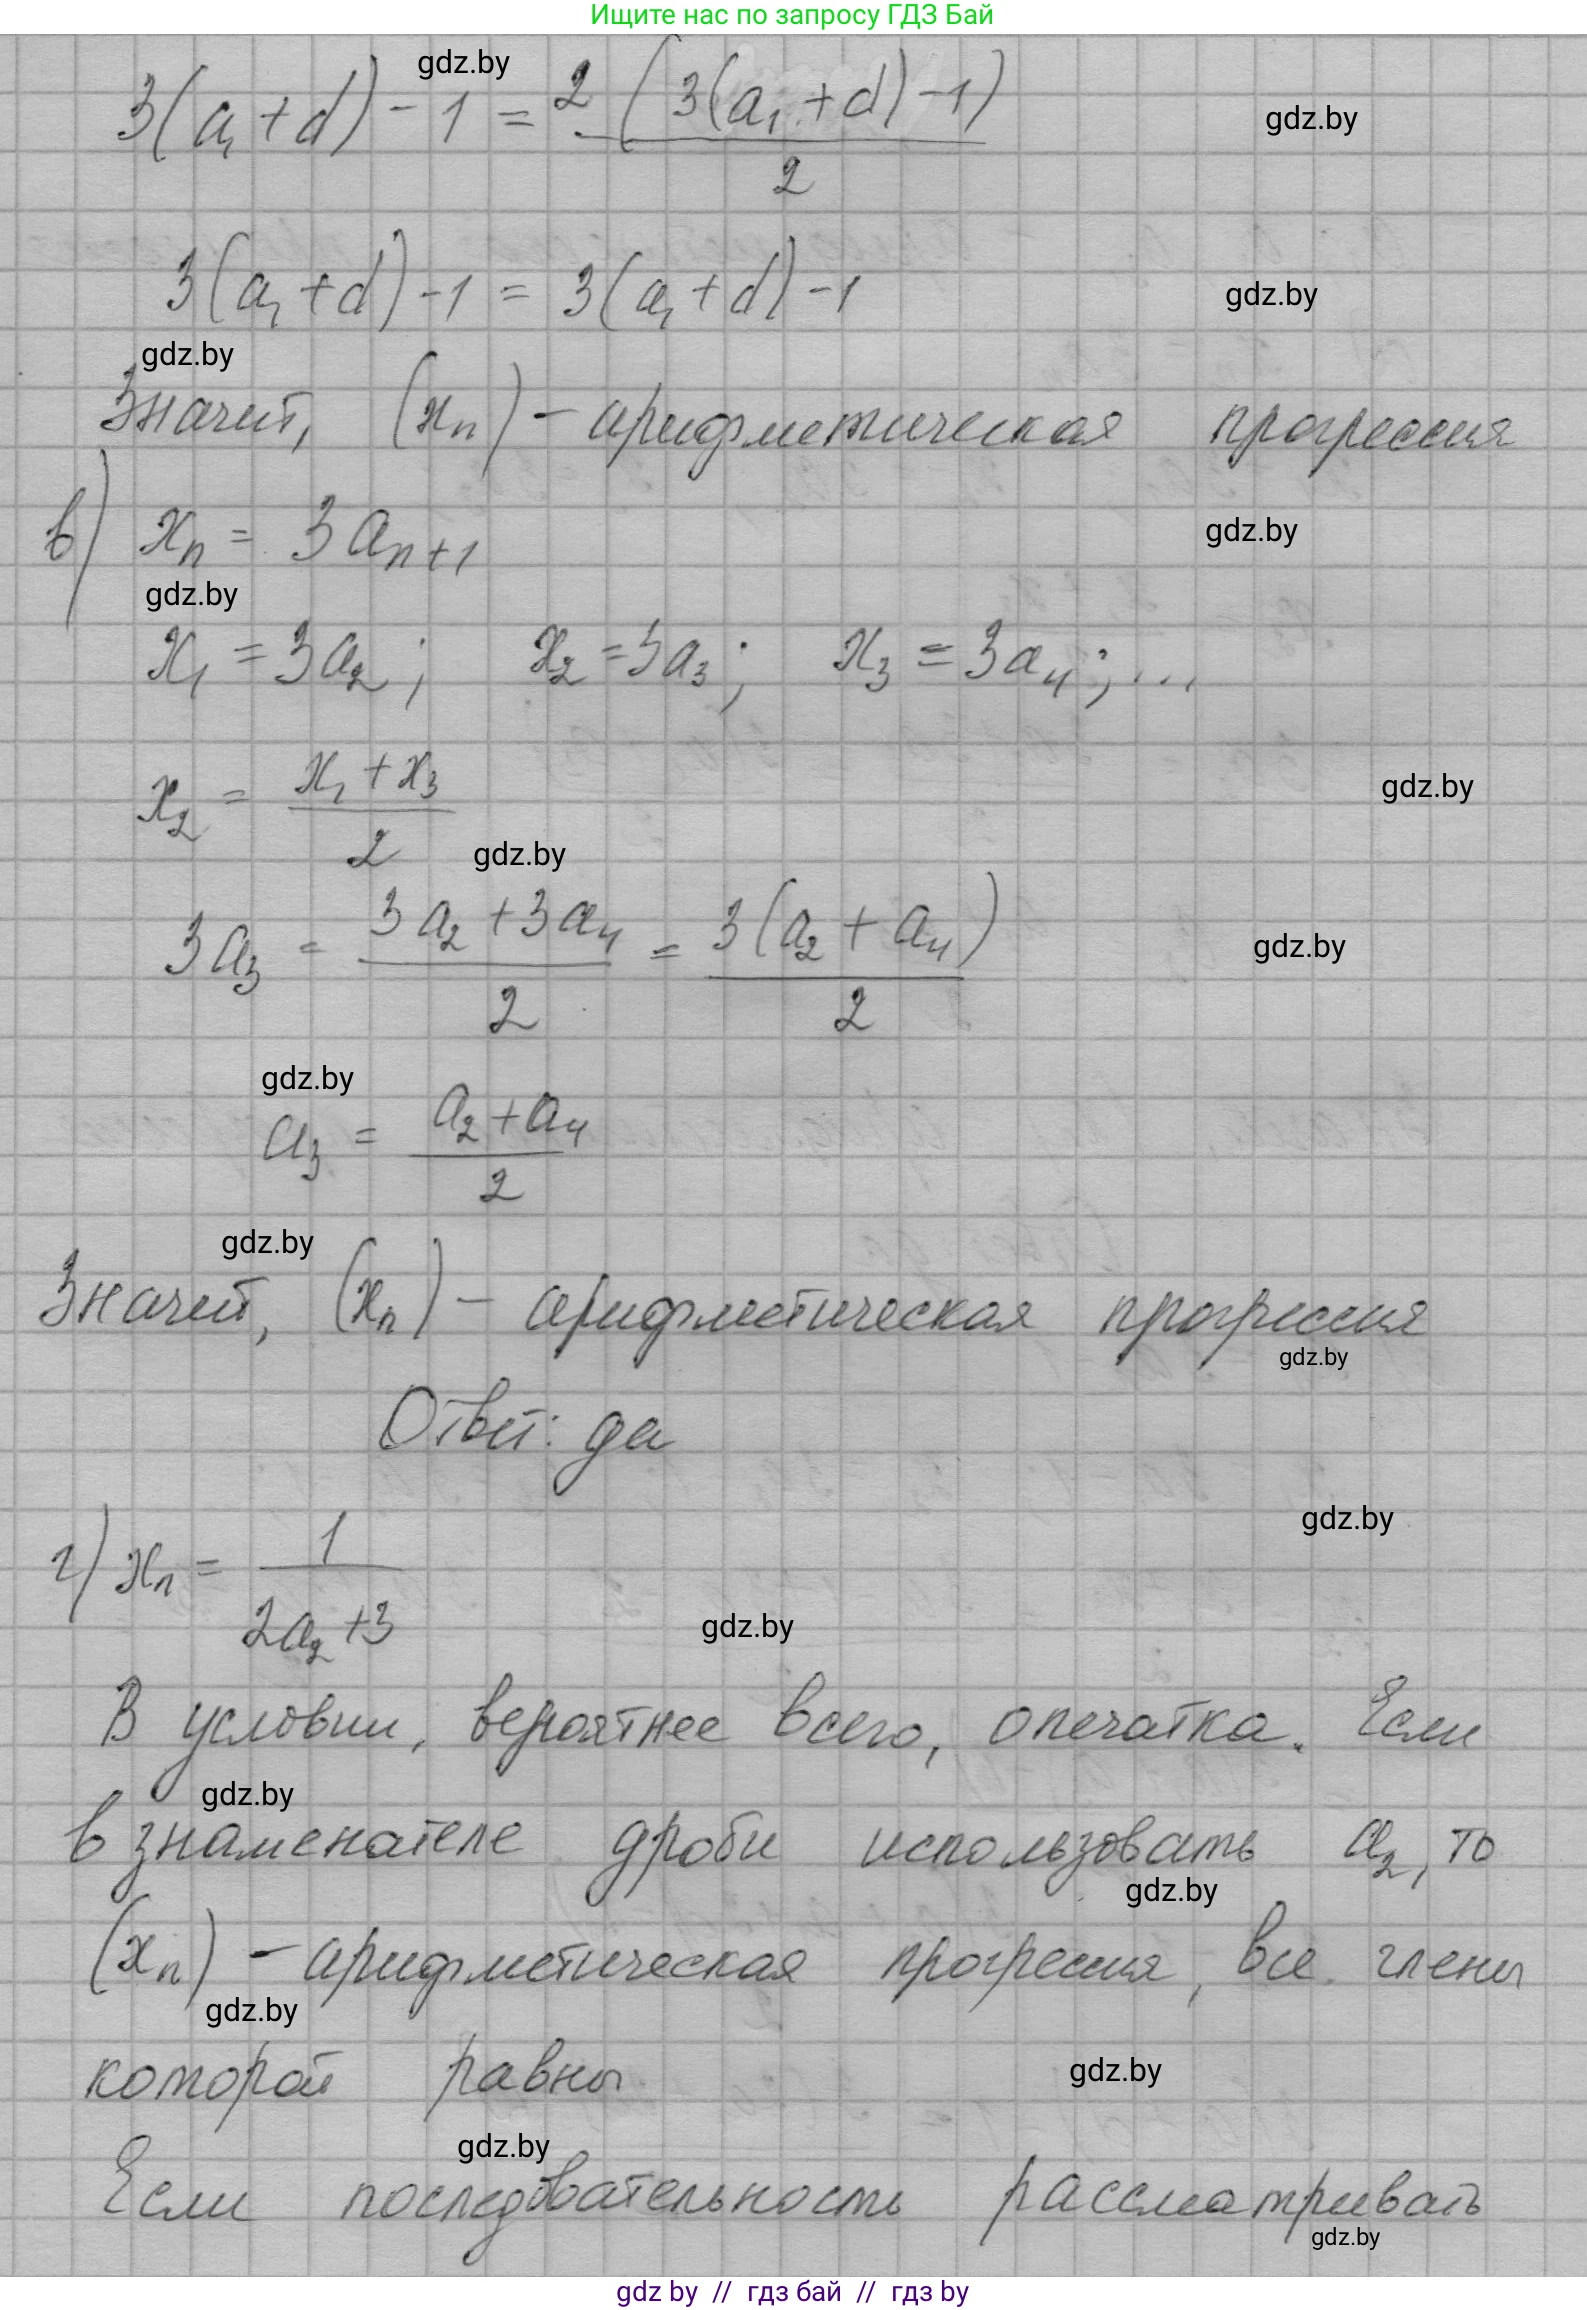 Ищите нас по запросу ГДЗ Бай
gdz.by
3(a₁+d)-1 = 2(3(a₁+d)-1)/2
gdz.by
3(a₁+d)-1 = 3(a₁+d)-1
gdz.by
gdz.by
Значит, (xₙ) - арифметическая прогрессия
в) xₙ = 3aₙ₊₁
gdz.by
gdz.by
x₁ = 3a₂; x₂ = 3a₃; x₃ = 3a₄; ...
x₂ = (x₁+x₃)/2
gdz.by
gdz.by
3a₃ = (3a₂+3a₄)/2 = 3(a₂+a₄)/2
gdz.by
gdz.by
a₃ = (a₂+a₄)/2
gdz.by
Значит, (xₙ) - арифметическая прогрессия
gdz.by
Ответ: да
gdz.by
г) xₙ = 1/(2a₂+3)
gdz.by
В условии, вероятнее всего, опечатка. Если
gdz.by
в знаменателе дроби использовать a₂, то
gdz.by
(xₙ) - арифметическая прогрессия, все члены
gdz.by
которой равны
gdz.by
gdz.by
Если последовательность рассматривать
gdz.by
gdz by // гдз бай // гдз by